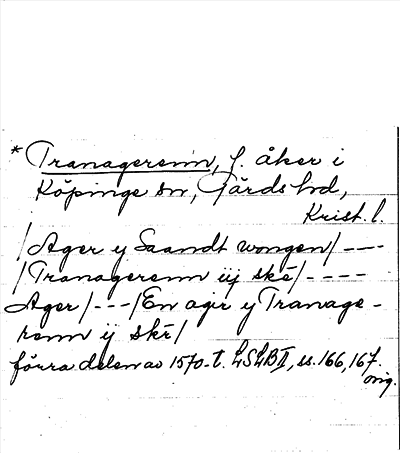 * Tranagerenn, f. åker i
Köpinge sn, Gärds hd,
Krist. l.
/Ager y Saandt wongen/ ----
/Tranagerenn iij skē/ ----
Ager/ --- /En agir y Tranage-
renn ij skē/
förra delen av 1570-t. LSLB II, ss. 166, 167.
orig.